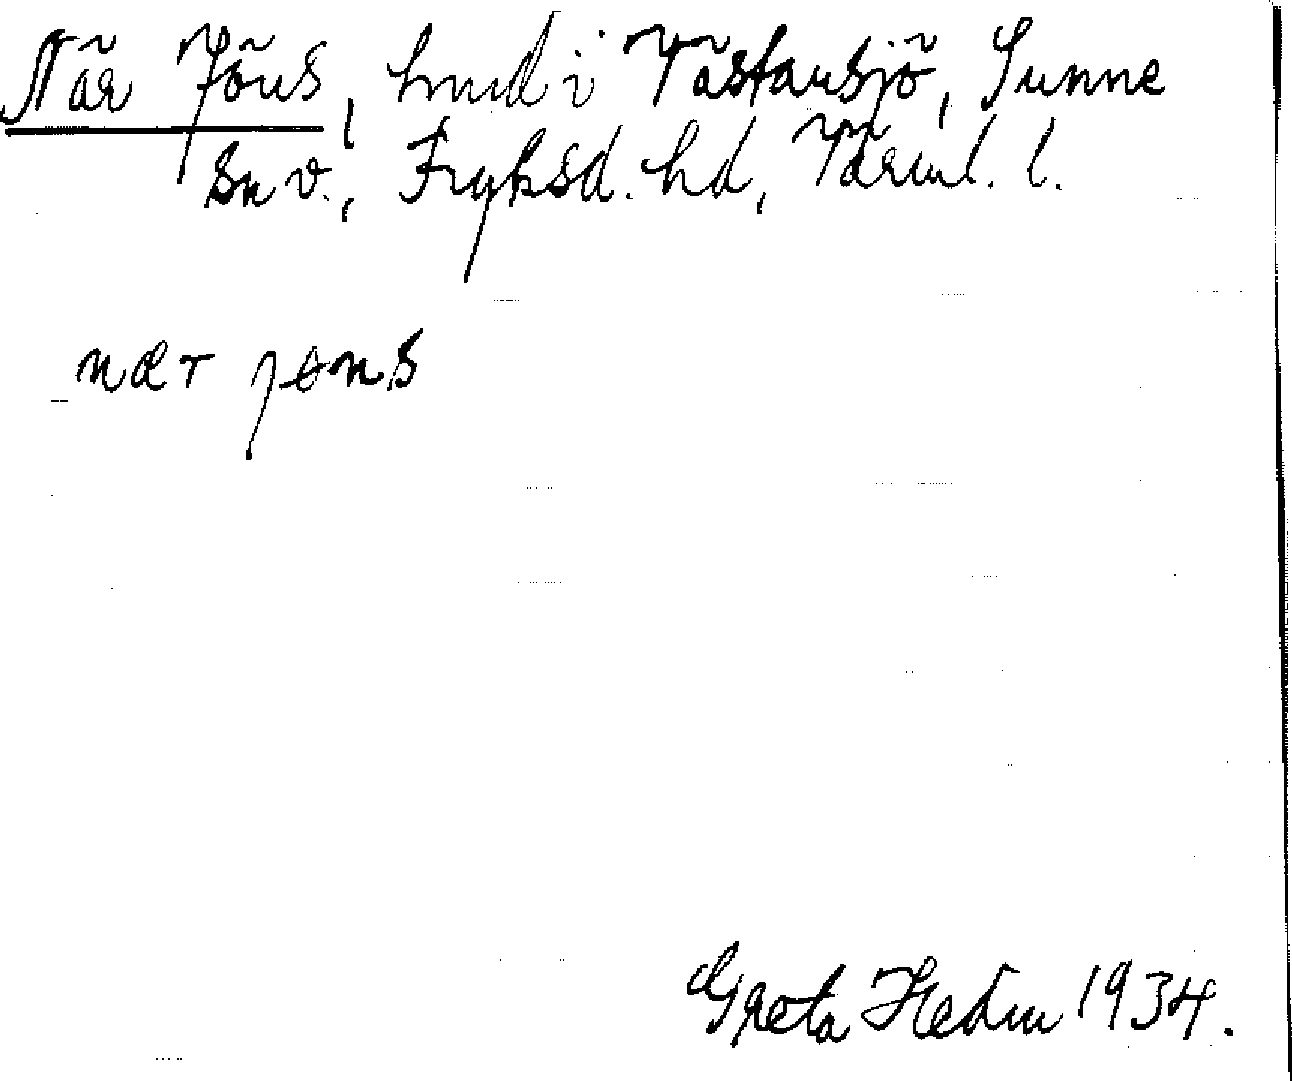 När Jöns, hmd i Västansjö, Sunne
sn v., Fryksd. hd, Värml. l.
nær jøns
Greta Hedin 1934.